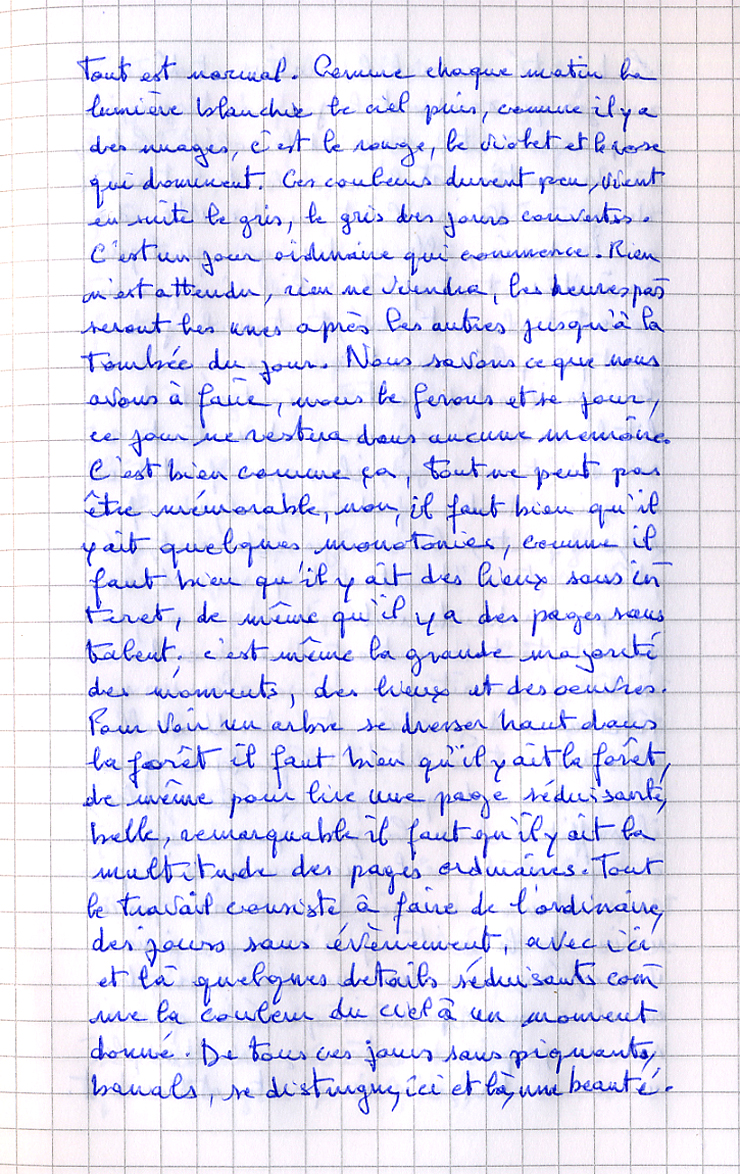 Tout est normal. Comme chaque matin la
lumière blanchie le ciel puis, comme il y a
des nuages, c'est le rouge, le violet et le rose
qui dominent. Ces couleurs durent peu, vient
en suite le gris, le gris des jours couverts.
C'est un jour ordinaire qui commence. Rien
n'est attendu, rien ne viendra, les heures pas
seront les unes après les autres jusqu'à la
tombée du jour. Nous savons ce que nous
avons à faire, nous le ferons et se jour,
ce jour ne restera dans aucune mémoire.
C'est bien comme ça, tout ne peut pas
être mémorable, non, il faut bien qu'il
y ait quelques monotonies, comme il
faut bien qu'il y ait des lieux sans in
teret, de même qu'il y a des pages sans
talent; c'est même la grande majorité
des moments, des lieux et des oeuvres.
Pour voir un arbre se dresser haut dans
la forêt il faut bien qu'il y ait la forêt,
de même pour lire une page séduisante,
belle, remarquable il faut qu'il y ait la
multitude des pages ordinaires. Tout
le travail consiste à faire de l'ordinaire,
des jours sans évènement, avec ici
et là quelques details séduisants com
me la couleur du ciel à un moment
donné. De tous ces jours sans piquants,
banals, se distingue, ici et là, une beauté.